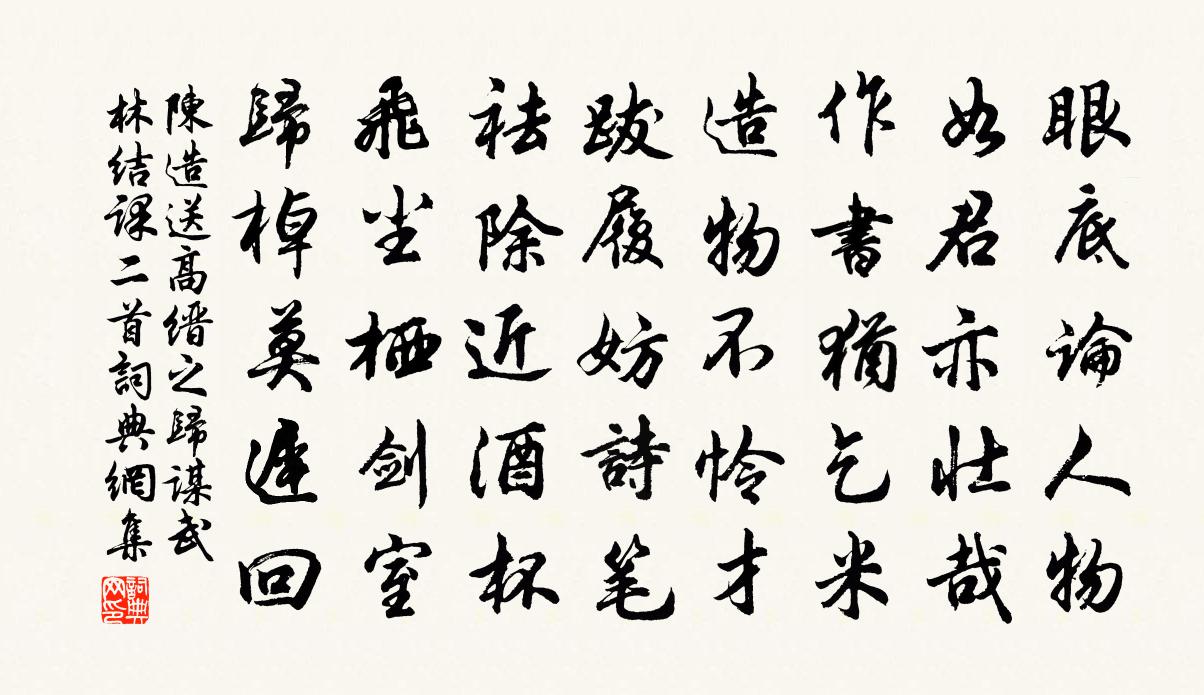 眼底論人物
如君亦壮哉
作書猶乞米
造物不怜才
跋履妨詩笔
祛除近酒杯
飛尘栖剑室
歸棹莫遲回
陳造送高缙之歸謀武
林结課二首詞典網集
詞典网印